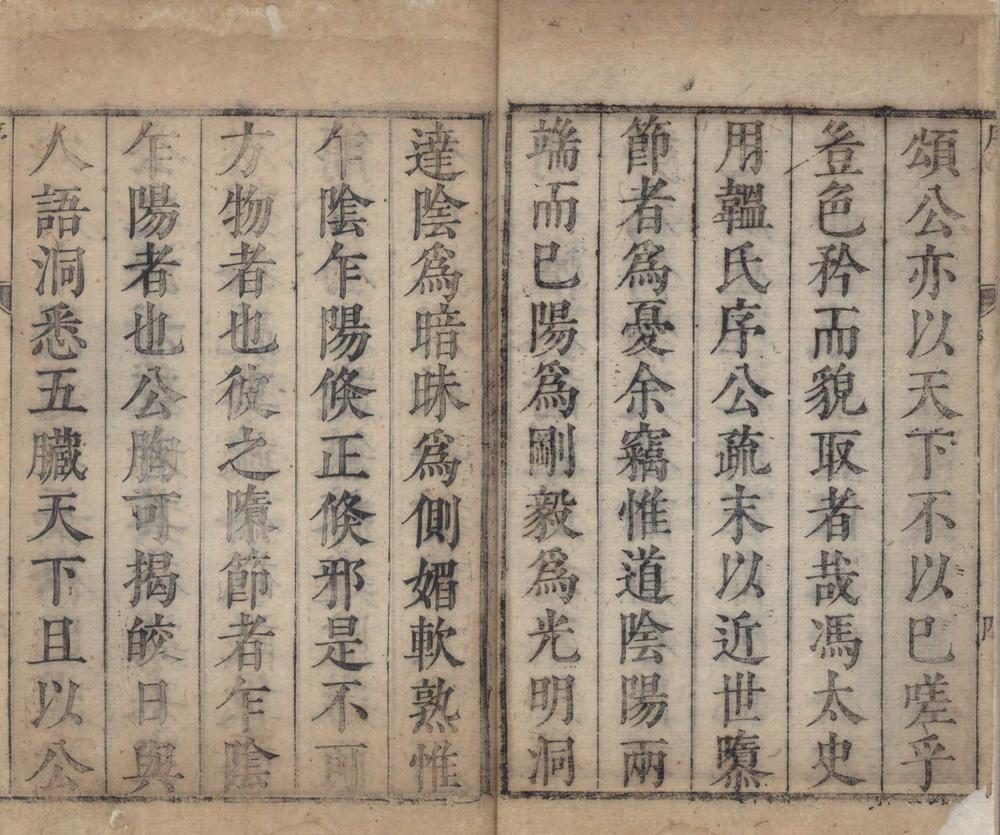 頌公亦以天下不以巳嗟乎
豈色矜而貌取者哉馮太史
用韞氏序公疏末以近世隳
節者爲憂余竊惟道陰陽兩
端而已陽爲剛毅爲光明洞
達陰爲暗昧爲側媚軟熟惟
乍陰乍陽倐正倐邪是不可
方物者也彼之隳節者乍陰
乍陽者也公胸可揭皎日與
人語洞悉五臟天下且以公